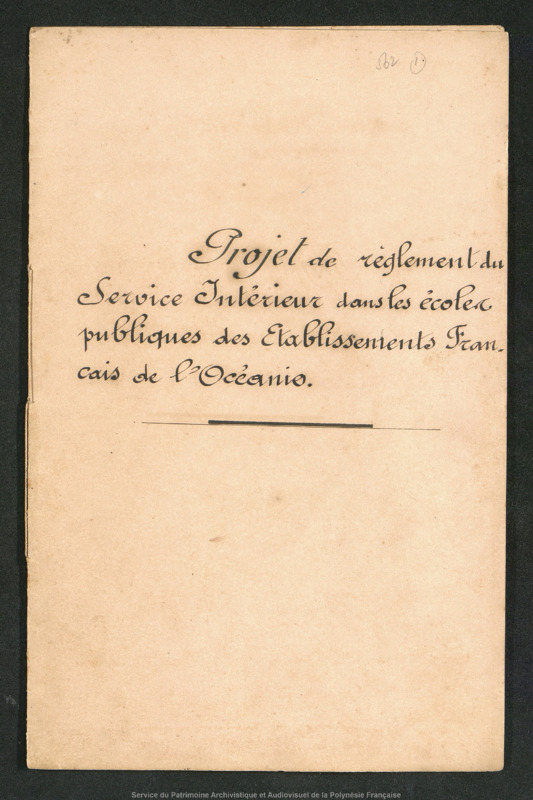 502 1
Projet de règlement du
Service Intérieur dans les écoles
publiques des Etablissements Fran-
cais de l'Océanie.
Service du Patrimoine Archivistique et Audiovisuel de la Polynésie Française